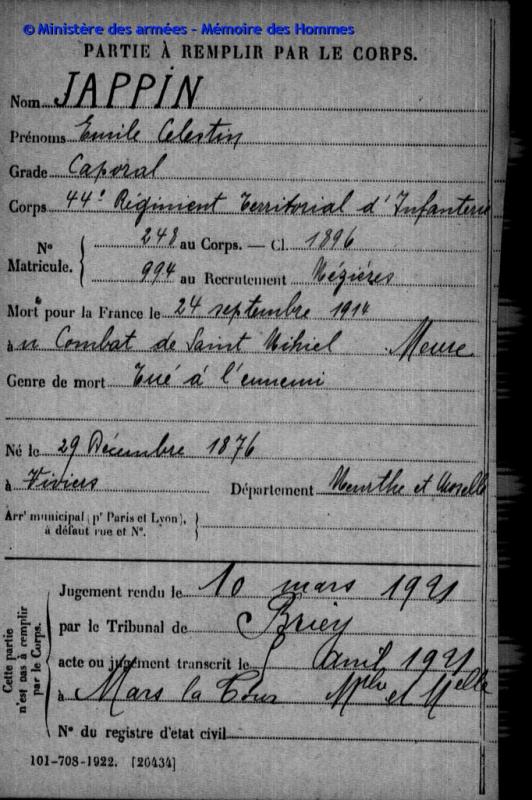 © Ministère des armées - Mémoire des Hommes
PARTIE À REMPLIR PAR LE CORPS.
Nom JAPPIN
Prénoms Emile Celestin
Grade Caporal
Corps 44e Régiment Territorial d'Infanterie
N° Matricule. { 248 au Corps. — Cl. 1896
994 au Recrutement Mézières
Mort pour la France le 24 septembre 1914
à u Combat de Saint Mihiel Meuse
Genre de mort Tué à l'ennemi
Né le 29 Décembre 1876
à Viviers Département Meurthe et Moselle
Arrt municipal (pr Paris et Lyon),
à défaut rue et N°.
Cette partie n'est pas à remplir par le Corps.
Jugement rendu le 10 mars 1921
par le Tribunal de Briey
acte ou jugement transcrit le avril 1921
à Mars la Tour Mthe et Melle
N° du registre d'état civil
101-708-1922. [20434]